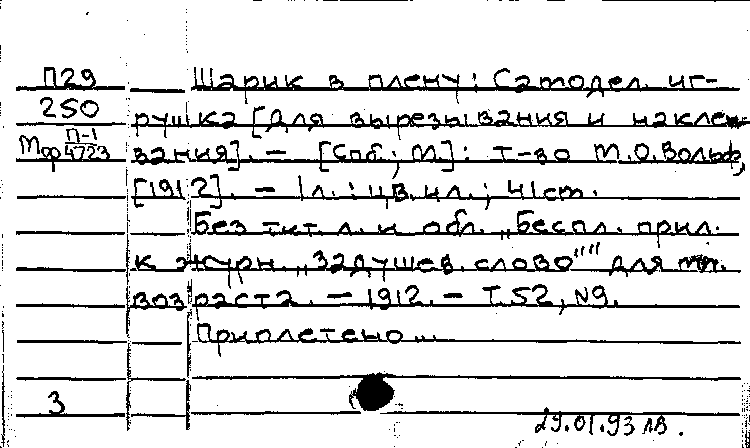 П29
250
Мфр П-1/4723
Шарик в плену: Самодел. иг-
рушка [для вырезывания и наклеи-
вания]. — [Спб.; М.]: т-во М.О.Вольф,
[1912]. — 1л.: цв.ил.; 41см.
Без тит. л. и обл. „Беспл. прил.
к журн. „Задушев. слово"" для мл.
возраста. — 1912. — Т.52, №9.
Приплетено...
3
29.01.93 ЛВ.